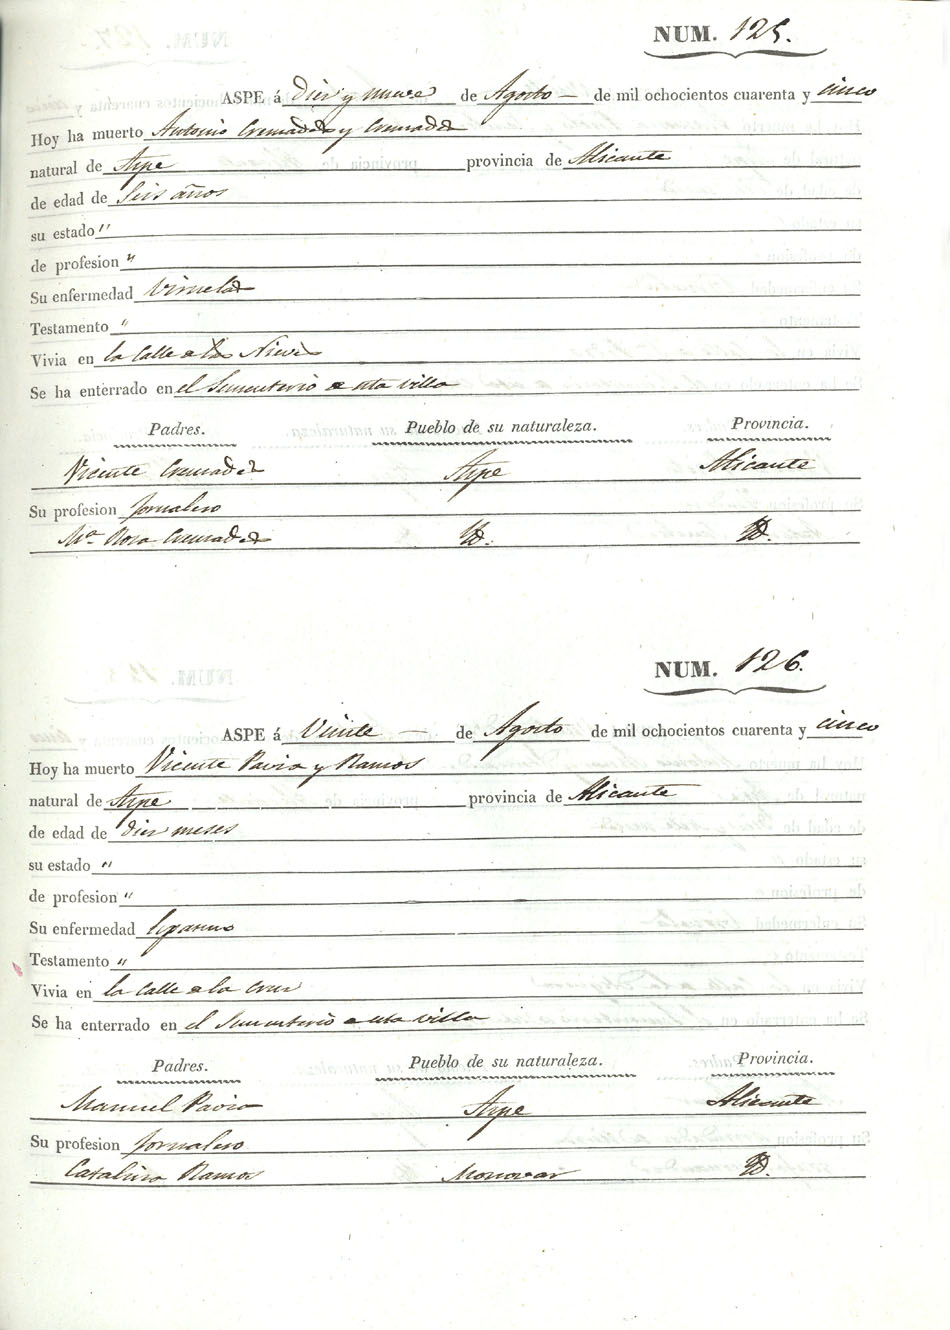 NUM. 125.
ASPE á Diez y nueve de Agosto de mil ochocientos cuarenta y cinco
Hoy ha muerto Antonio Cremades y Cremades
natural de Aspe provincia de Alicante
de edad de Seis años
su estado "
de profesion "
Su enfermedad Viruelas
Testamento "
Vivia en la Calle de las Nieves
Se ha enterrado en el Sementerio de esta villa
Padres. Pueblo de su naturaleza. Provincia.
Vicente Cremades Aspe Alicante
Su profesion jornalero
Mª. Rosa Cremades Yd. Yd.
NUM. 126.
ASPE á Veinte de Agosto de mil ochocientos cuarenta y cinco
Hoy ha muerto Vicente Pavia y Ramos
natural de Aspe provincia de Alicante
de edad de diez meses
su estado "
de profesion "
Su enfermedad
Testamento "
Vivia en la Calle de la Cruz
Se ha enterrado en el Sementerio de esta villa
Padres. Pueblo de su naturaleza. Provincia.
Manuel Pavia Aspe Alicante
Su profesion jornalero
Catalina Ramos Monovar Yd.